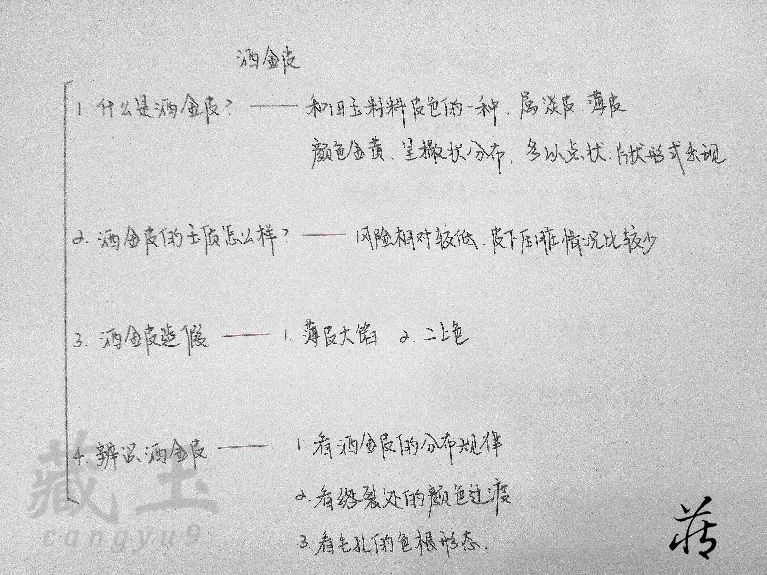 洒金皮
1. 什么是洒金皮? —— 和田玉籽料皮色的一种. 属淡皮. 薄皮
颜色金黄. 呈撒状分布. 多以点状. 片状形式出现
2. 洒金皮的玉质怎么样? —— 风险相对较低. 皮下包脏情况比较少
3. 洒金皮造假 —— 1. 薄皮大馅 2. 二上色
4. 辨识洒金皮 —— 1. 看洒金皮的分布规律
2. 看绺裂处的颜色过渡
3. 看毛孔的色根形态.
藏玉
cangyu9